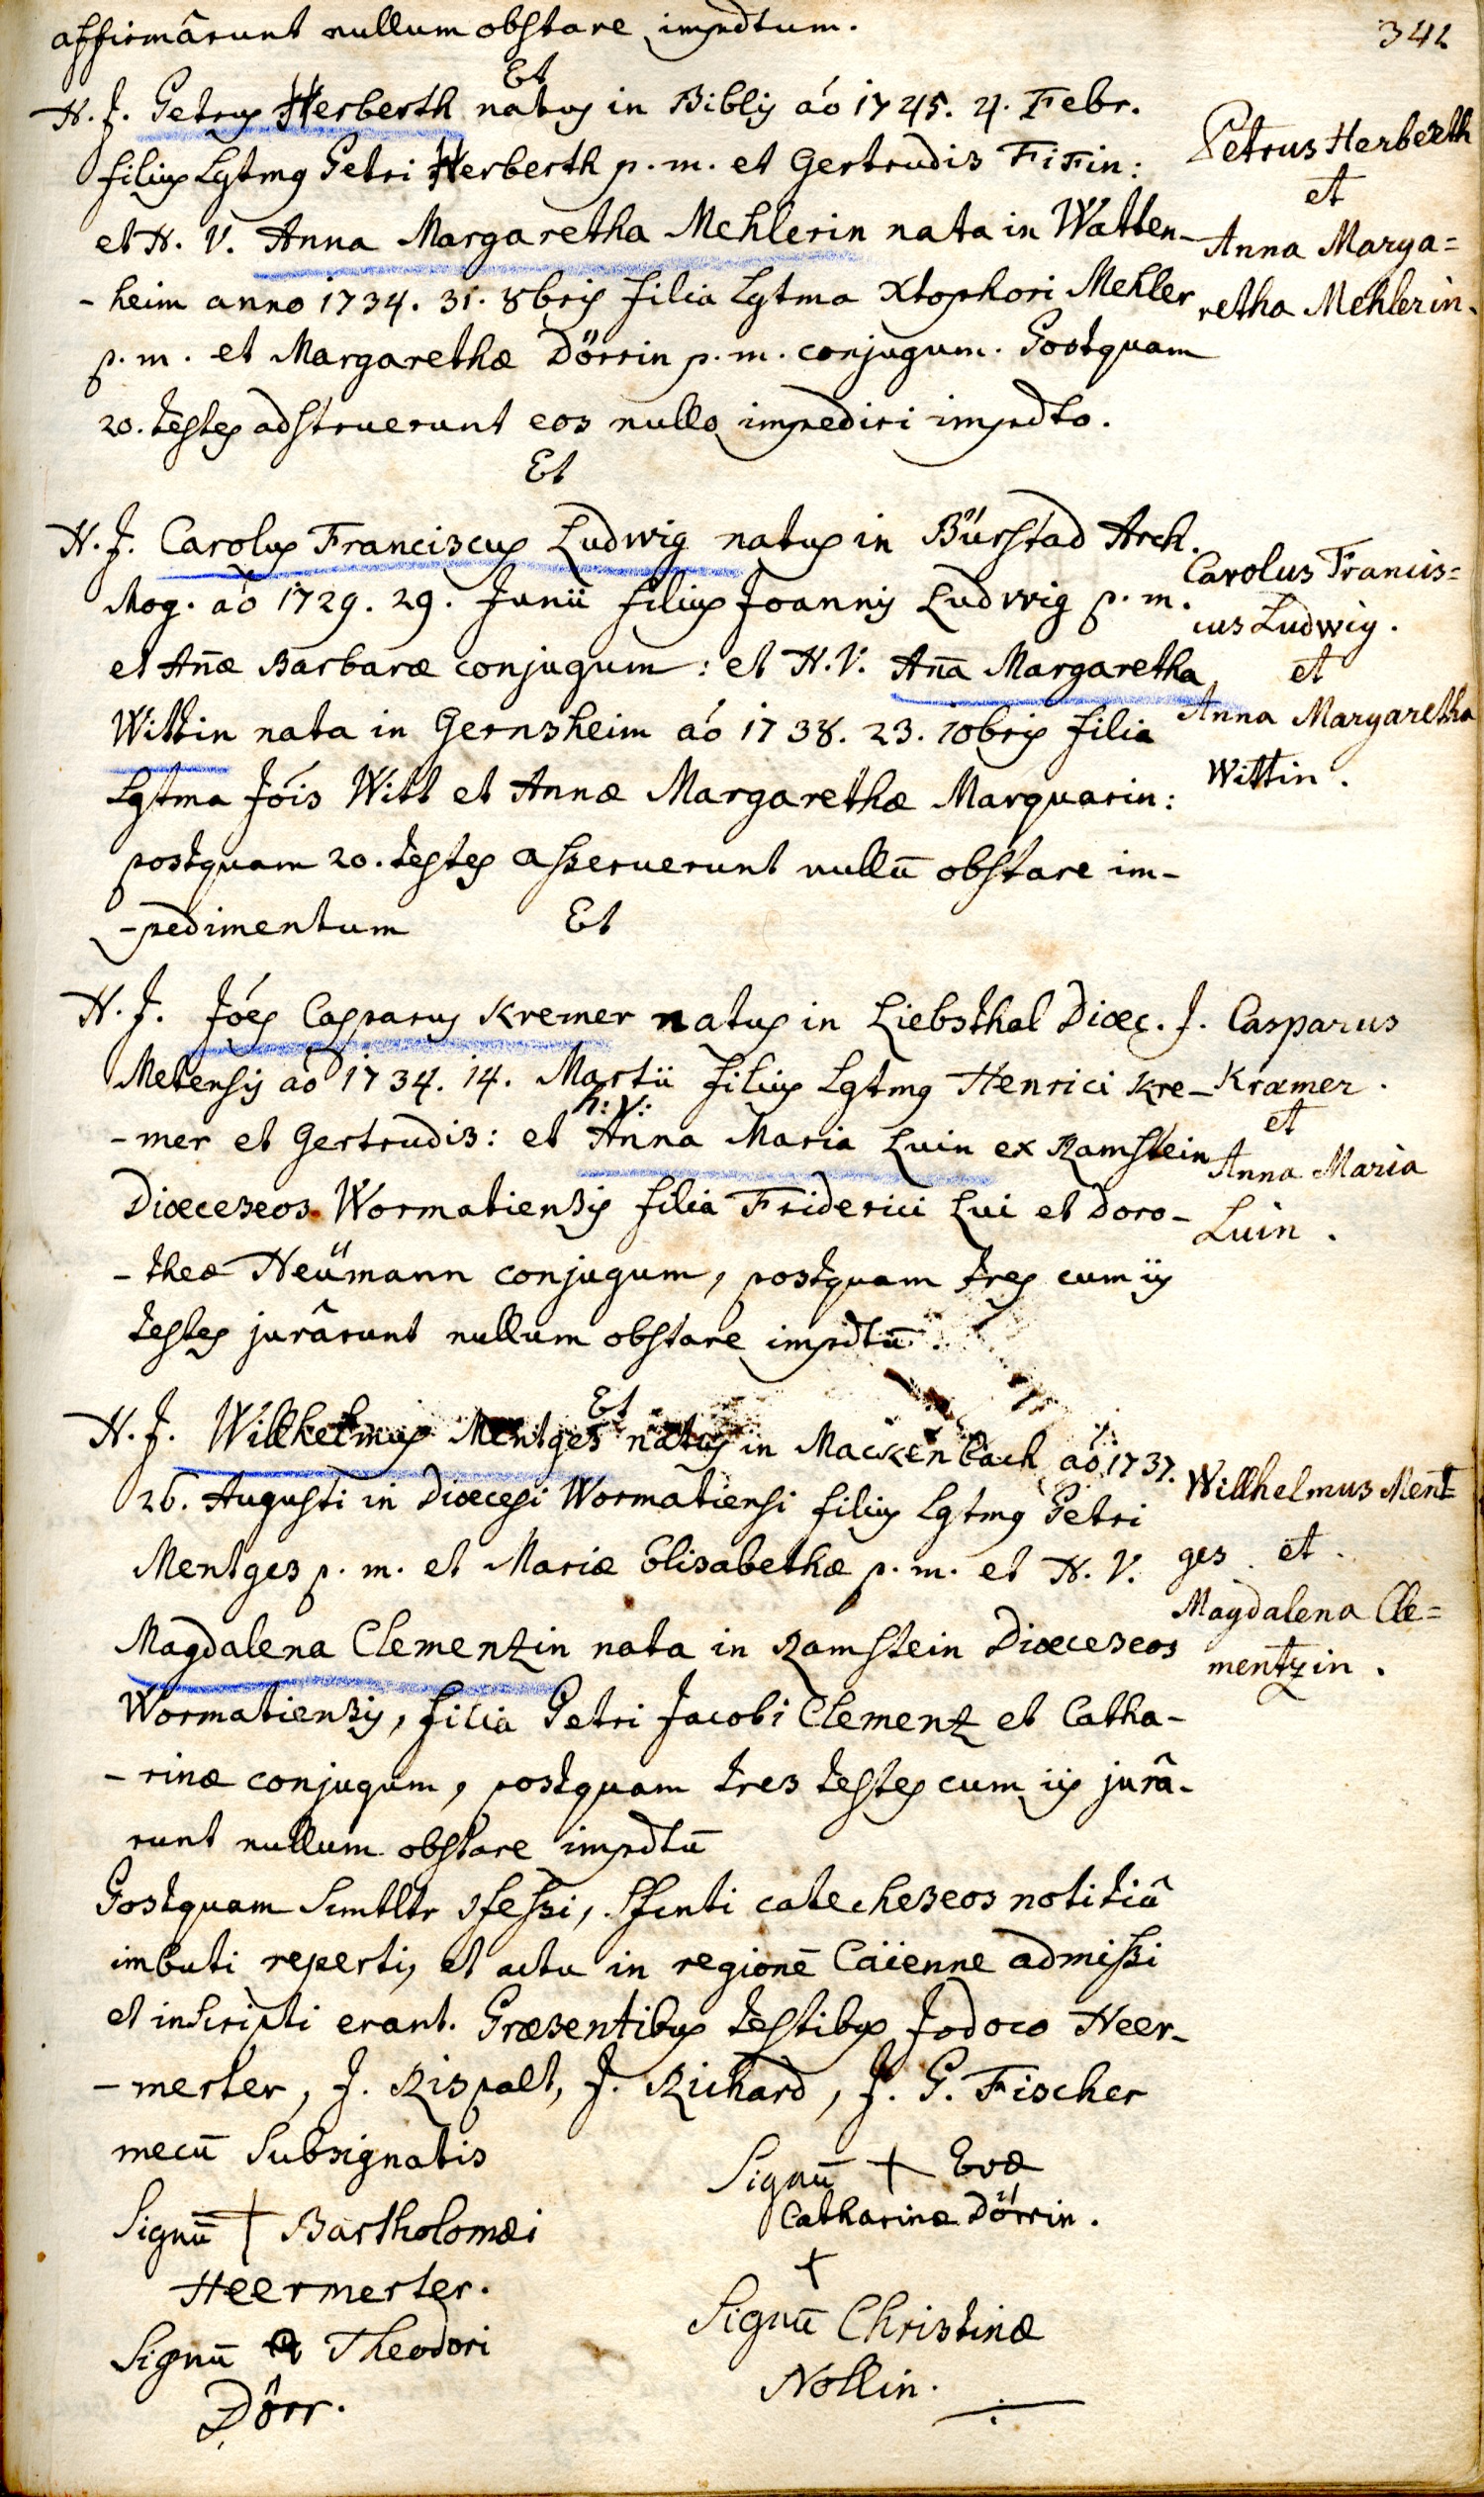 affirmârunt nullum obstare impdtum.
342
Et
H. J. Petrus Herberth natus in Biblis aó 1745. 4. Febr.
filius Lgtmg Petri Herberth p. m. et Gertrudis Fifin:
et H. V. Anna Margaretha Mehlerin nata in Watten-
-heim anno 1734. 31. 8bris filia Lgtma Xtophori Mehler
p. m. et Margarethæ Dörrin p. m. conjugum. Postquam
20. testes adstruerunt eos nullo impediri impdto.
Petrus Herberth
et
Anna Marga=
retha Mehlerin.
Et
H. J. Carolus Franciscus Ludwig natus in Bürstad Arch.
Mog. aó 1729. 29. Junii filius Joannis Ludwig p. m.
et Ana͞e Barbaræ conjugum: et H. V. An͞a Margaretha
Wittin nata in Gernsheim aó 1738. 23. 10bris filia
Lgtma Jóis Witt et Annæ Margarethæ Marquarin:
postquam 20. testes asseruerunt nullū obstare im-
-pedimentum
Carolus Francis=
cus Ludwig.
et
Anna Margaretha
Wittin.
Et
H. J. Jóes Casparus Kremer natus in Liebsthal Diœc.
Metensis aó 1734. 14. Martii filius Lgtmg Henrici Kre-
h: V:
-mer et Gertrudis: et Anna Maria Luin ex Ramstein
Diœceseos Wormatiensis filia Friderici Lui et Doro-
-theæ Neümann conjugum, postquam tres cum iis
testes jurârunt nullum obstare impdtū.
J. Casparus
Kræmer.
et
Anna Maria
Luin.
Et
H. J. Willhelmus Mentges natus in Mackenbach aó 1737.
26. Augusti in Diœcesi Wormatiensi filius Lgtmg Petri
Mentges p. m. et Mariæ Elisabethæ p. m. et H. V.
Magdalena Clementzin nata in Ramstein Diœceseos
Wormatiensis, filia Petri Jacobi Clementz et Catha-
-rinæ conjugum, postquam tres testes cum iis jurâ-
runt nullum obstare impdtū
Willhelmus Ment=
ges et.
Magdalena Cle=
mentzin.
Postquam Scmtltr 9fessi, sfcnti catecheseos notitiâ
imbuti reperti, et actu in regionē Caïenne admissi
et inscripti erant. Præsentibus testibus Jodoco Heer-
-merter, J. Rispalt, J. Richard, J. P. Fischer
mecū subsignatis
Signū + Bartholomæi
Heermerter.
Signū Theodori
Dörr.
Signū + Evæ
Catharinæ Dörrin.
+
Signū Christinæ
Nollin.